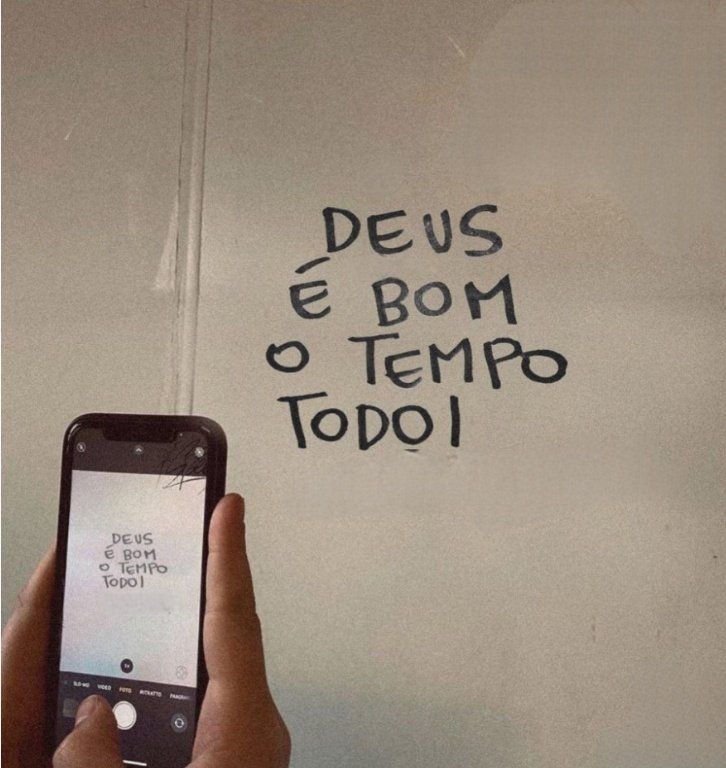 DEUS
É BOM
O TEMPO
TODO!
DEUS
É BOM
O TEMPO
TODO!
1x
SLO-MO VIDEO FOTO RITRATTO PANORAM